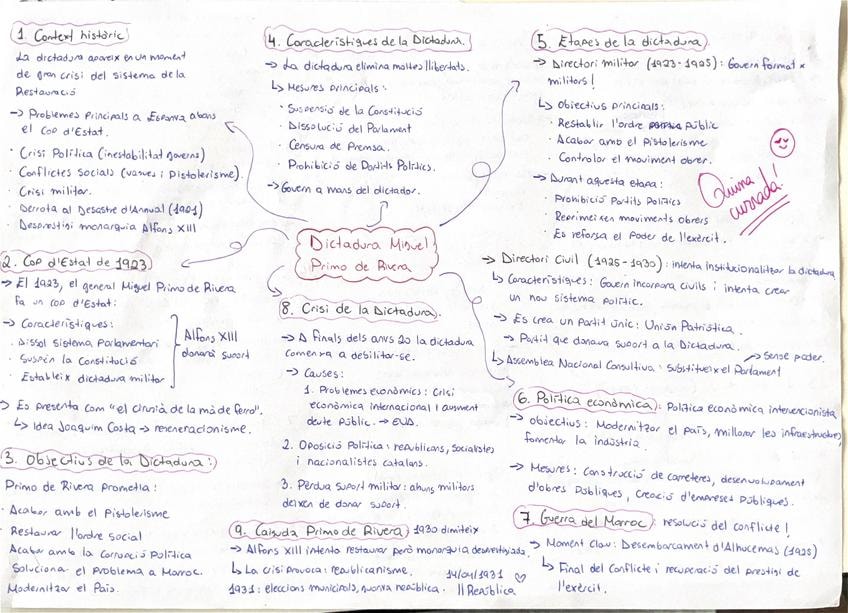 Dictadura Miguel
Primo de Rivera
1. Context històric
La dictadura apareix en un moment
de gran crisi del sistema de la
Restauració
→ Problemes principals a Espanya abans
el cop d'Estat.
· Crisi Política (inestabilitat governs)
· Conflictes socials (vagues i pistolerisme).
· Crisi militar.
· Derrota al Desastre d'Annual (1921)
· Desprestigi monarquia Alfons XIII
2. Cop d'Estat de 1923
→ El 1923, el general Miguel Primo de Rivera
fa un cop d'Estat:
→ Característiques:
· Dissol sistema Parlamentari
· Suspèn la Constitució
· Estableix dictadura militar
Alfons XIII
donarà suport
→ Es presenta com "el cirurgià de la mà de ferro".
↳ Idea Joaquim Costa → regeneracionisme.
3. Objectius de la Dictadura:
Primo de Rivera prometia:
· Acabar amb el Pistolerisme
Restaurar l'ordre social
Acabar amb la corrupció política
Soluciona el problema a Marroc.
Modernitzar el País.
4. Característiques de la Dictadura.
→ La dictadura elimina moltes llibertats.
↳ Mesures principals:
· Suspensió de la Constitució
· Dissolució del Parlament
· Censura de Premsa.
· Prohibició de Partits Polítics.
→ Govern a mans del dictador.
5. Etapes de la dictadura.
→ Directori militar (1923-1925): Govern format x
militars!
↳ Objectius principals:
· Restablir l'ordre públic
· Acabar amb el Pistolerisme
· Controlar el moviment obrer.
→ Durant aquesta etapa:
· Prohibició Partits Polítics
· Reprimeixen moviments obrers
· Es reforça el poder de l'exèrcit.
Quina
currada!
→ Directori Civil (1925-1930): intenta institucionalitzar la dictadura
↳ Característiques: Govern incorpora civils i intenta crear
un nou sistema polític.
→ Es crea un partit únic: Unión Patriótica.
→ Partit que donava suport a la Dictadura.
↳ Assemblea Nacional Consultiva: substitueix el Parlament
→ Sense poder.
6. Política econòmica: Política econòmica intervencionista
→ objectius: Modernitzar el país, millorar les infraestructures,
fomentar la indústria.
→ Mesures: Construcció de carreteres, desenvolupament
d'obres públiques, creació d'empreses públiques.
7. Guerra del Marroc: resolució del conflicte!
→ Moment clau: Desembarcament d'Alhucemas (1925)
↳ Final del conflicte i recuperació del prestigi de
l'exèrcit.
8. Crisi de la Dictadura.
→ A finals dels anys 20 la dictadura
comença a debilitar-se.
→ Causes:
1. Problemes econòmics: Crisi
econòmica internacional i augment
deute públic. → EUA.
2. Oposició Política: republicans, socialistes
i nacionalistes catalans.
3. Pèrdua suport militar: alguns militars
deixen de donar suport.
9. Caiguda Primo de Rivera 1930 dimiteix
→ Alfons XIII intenta restaurar però monarquia desprestigiada.
↳ La crisi provoca: republicanisme.
1931: eleccions municipals, nova república.
14/04/1931 ♡
II República